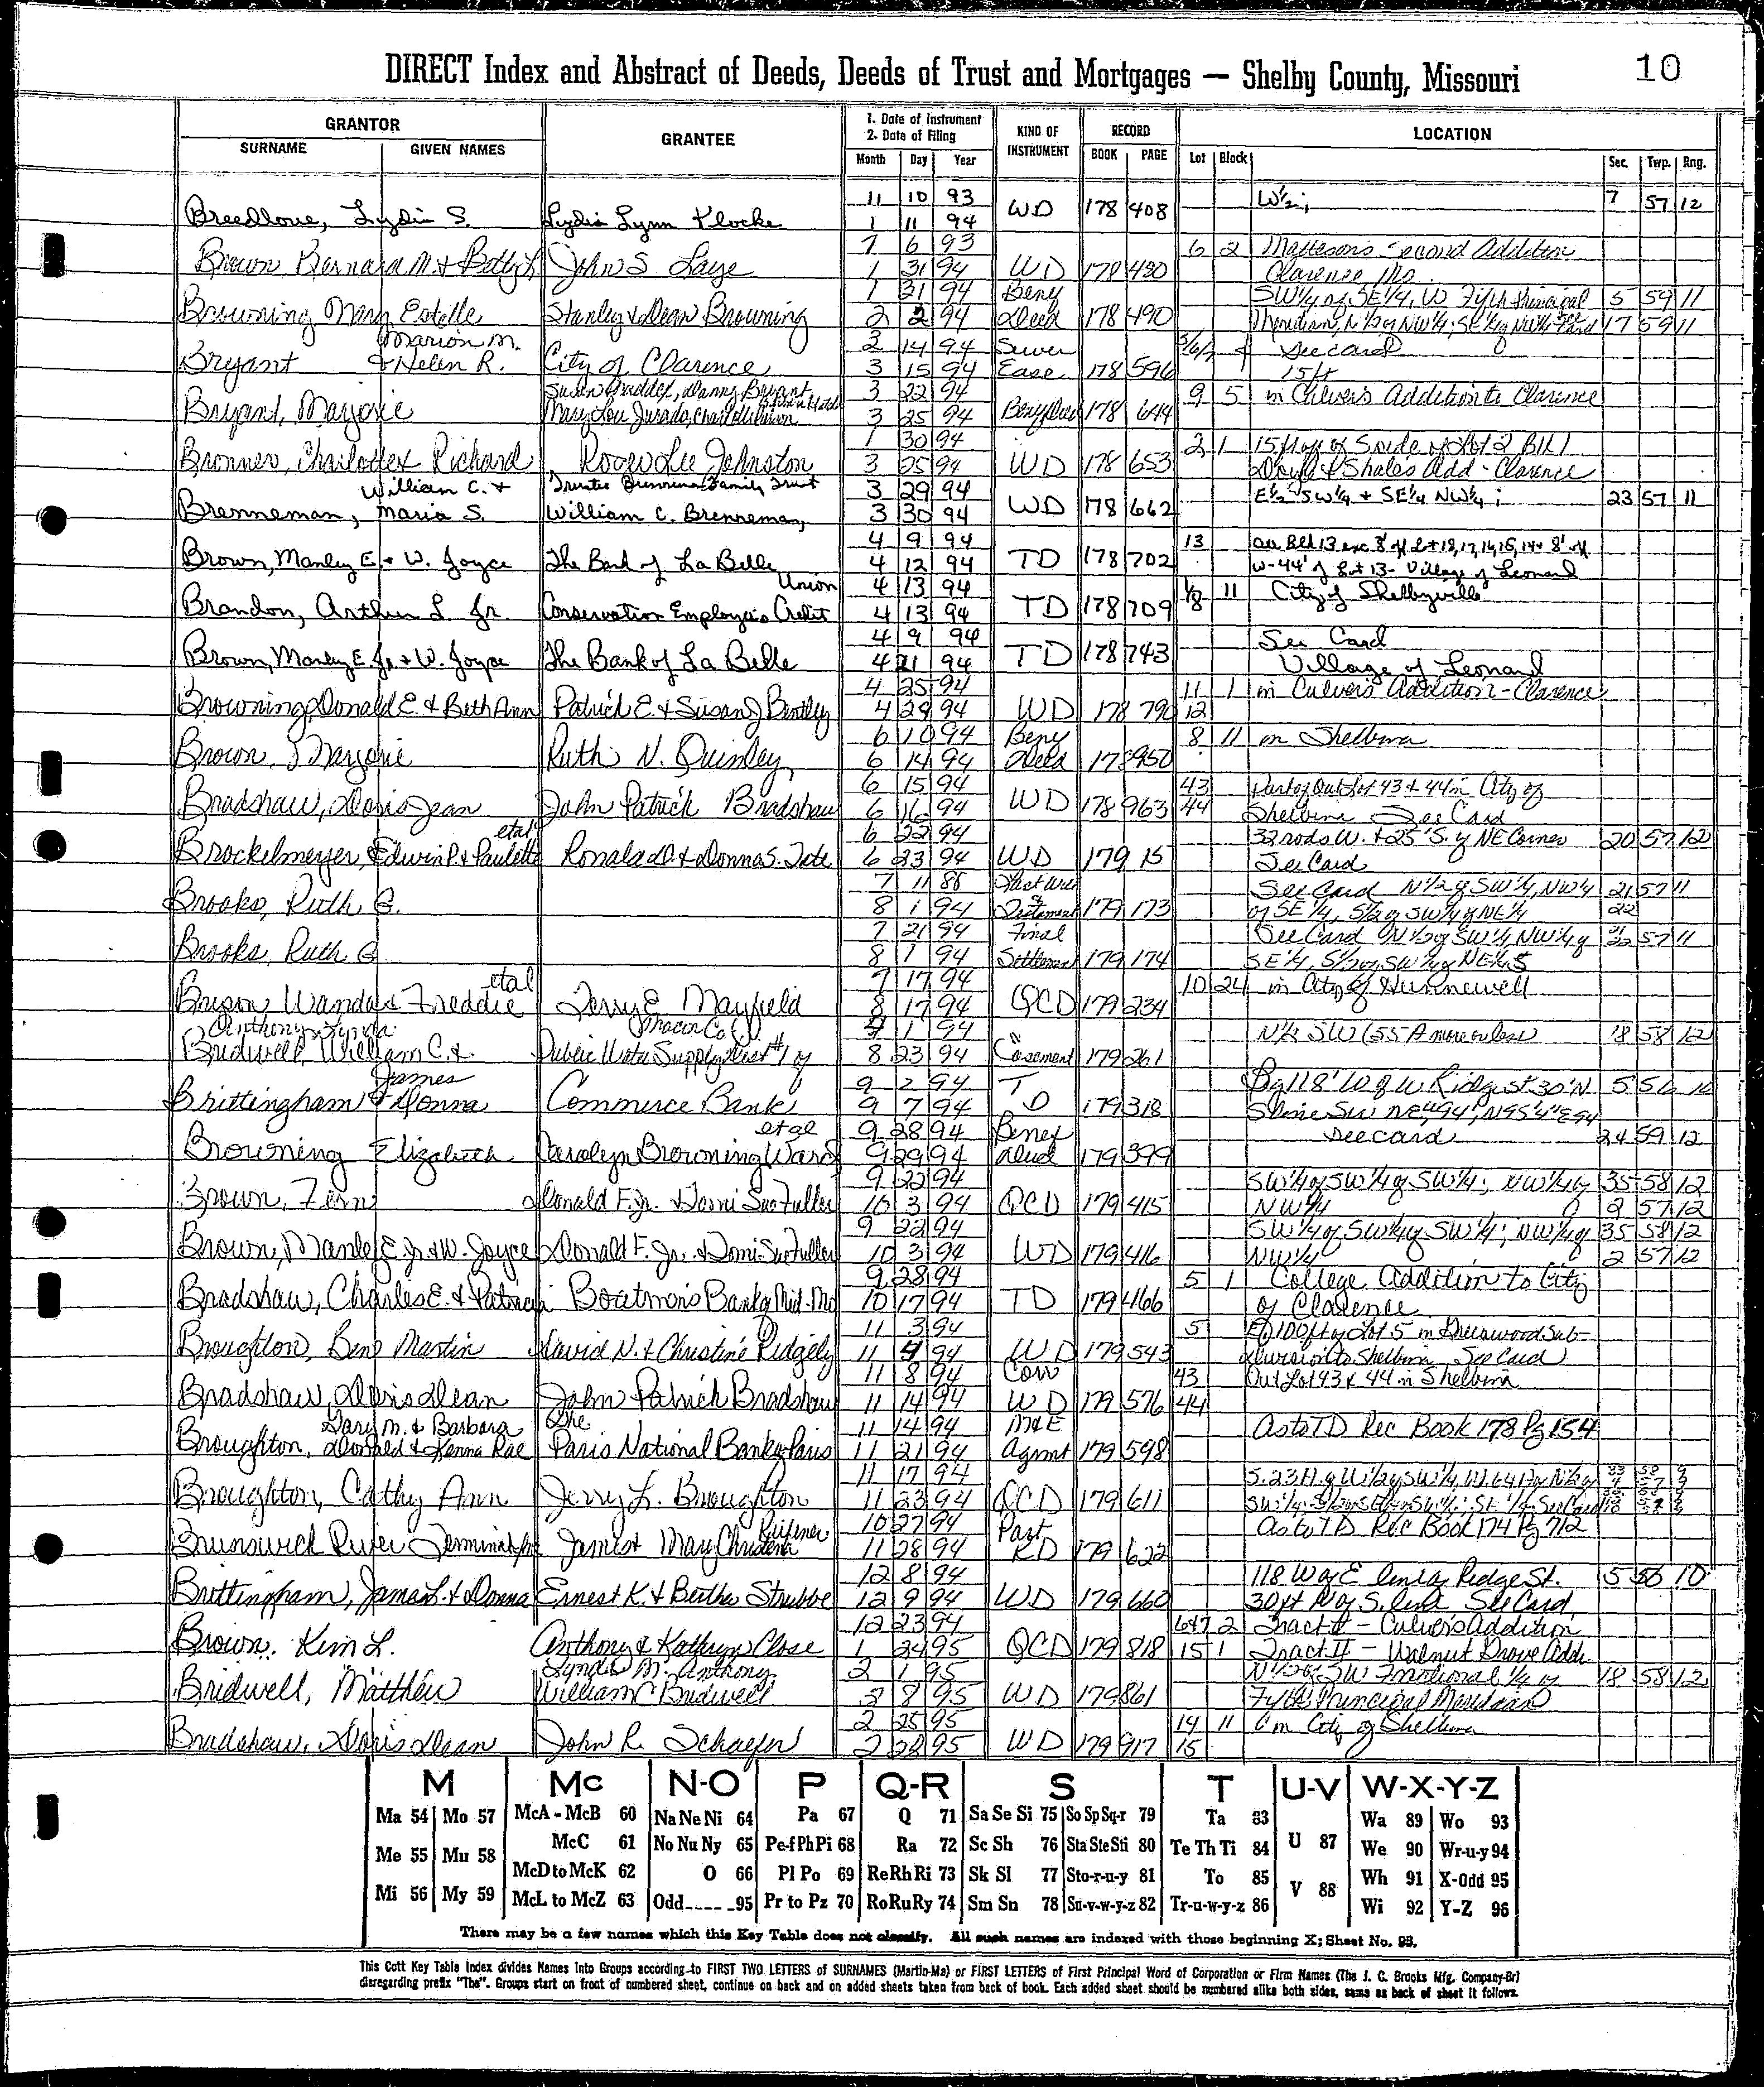 10
DIRECT Index and Abstract of Deeds, Deeds of Trust and Mortgages — Shelby County, Missouri
GRANTOR GRANTEE 1. Date of Instrument 2. Date of Filing KIND OF INSTRUMENT RECORD LOCATION
SURNAME GIVEN NAMES Month Day Year BOOK PAGE Lot Block Sec. Twp. Rng.
11 10 93 W½; 7 57 12
Breedlove, Lydia S. Lydia Lynn Klocke 1 11 94 WD 178 408
7 6 93 6 2 Mattesons Second Addition
Brown Bernard M. & Betty John S Laye 1 31 94 WD 178 430 Clarence Mo.
1 31 94 Beny SW¼ of SE¼, W Fifth Principal 5 59 11
Browning Mary Estelle Stanley & Dean Browning 2 2 94 Deed 178 490 Meridian, N½ of NW¼; SE¼ of NW¼ See Card 17 59 11
Marion M. 2 14 94 Sewer See card
Bryant & Helen R. City of Clarence 3 15 94 Ease 178 596 15ft
3 22 94 9 5 in Culvers Addition to Clarence
Bryant, Marjorie 3 25 94 Beny Deed 178 644
1 30 94 2 1 15ft off of S side of Lot 2 Blk 1
Bronner, Charlotte & Richard Roger Lee Johnston 3 25 94 WD 178 653 Doyle & Shales Add - Clarence
William C. & Trustee Brenneman Family Trust 3 29 94 E½ SW¼ & SE¼ NW¼; 23 57 11
Brenneman, Maria S. William C. Brenneman, 3 30 94 WD 178 662
4 9 94 13 all Blk 13 exc 8' off Lot 18,17,16,15,14 & 8' off
Brown, Manley E. & W. Joyce The Bank of La Belle 4 12 94 TD 178 702 W-44' of Lot 13- Village of Leonard
Union 4 13 94 11 City of Shelbyville
Brandon, Arthur L. Jr. Conservation Employees Credit 4 13 94 TD 178 709 8
4 9 94 See Card
Brown, Manley E. Jr. & W. Joyce The Bank of La Belle 4 21 94 TD 178 743 Village of Leonard
4 25 94 11 1 in Culvers Addition - Clarence
Browning, Donald E. & Beth Ann Patrick E. & Susan J Bentley 4 29 94 WD 178 790 12
6 10 94 Beny 8 11 in Shelbina
Brown, Marjorie Ruth N. Quinley, 6 14 94 Deed 178 950
6 15 94 43 Part of Outlot 43 & 44 in City of
Bradshaw, Doris Jean John Patrick Bradshaw 6 16 94 WD 178 963 44 Shelbina See Card
etal 6 22 94 32 rods W. & 25' S. of NE Corner 20 57 12
Brockelmeyer, Edwin P. & Paulette Ronald D. & Donna S. Tate 6 23 94 WD 179 15 See Card
7 11 88 Last Will See Card N½ of SW¼, NW¼ 21 57 11
Brooks, Ruth G. 8 1 94 & Testament 179 173 of SE¼, S½ of SW¼ of NE¼ 22
7 21 94 Final See Card N½ of SW¼, NW¼ of 21 57 11
Brooks, Ruth G 8 1 94 Settlement 179 174 SE¼, S½ of SW¼ of NE¼ 22
etal 7 17 94 10 24 in City of Hunnewell
Bryson, Wanda & Freddie Terry E. Mayfield 8 17 94 QCD 179 234
Anthony, Lynda Macon Co. 1 94 N½ SW (55 A more or less 18 58 12
Bridwell, William C. & Public Water Supply Dist #1 of 8 23 94 Easement 179 261
James 9 2 94 T Bg 118' W of W Ridge St. 30' N 5 56 10
Brittingham & Donna Commerce Bank 9 7 94 D 179 318
etal 9 28 94 Benef See card 24 59 12
Browning Elizabeth Carolyn Browning Ward 9 29 94 Deed 179 399
9 22 94 SW¼ of SW¼ of SW¼; NW¼ of 35 58 12
Brown, Fern Donald F. Jr. & Domi Sue Fuller 10 3 94 QCD 179 415 NW¼ 2 57 12
9 22 94 SW¼ of SW¼ of SW¼; NW¼ of 35 58 12
Brown, Manley E. Jr. & W. Joyce Donald F. Jr. & Domi Sue Fuller 10 3 94 WD 179 416 NW¼ 2 57 12
9 28 94 5 1 College Addition to City
Bradshaw, Charles E. & Patricia Boatmen's Bank of Mid-Mo 10 17 94 TD 179 466 of Clarence
11 3 94 5 E/100ft of Lot 5 in Greenwood Sub-
Broughton, Benj Martin David N. & Christine Ridgely 11 4 94 WD 179 543 division to Shelbina See Card
11 8 94 Corr 43 Out Lot 43 & 44 in Shelbina
Bradshaw, Doris Jean John Patrick Bradshaw 11 14 94 WD 179 576 44
Gary M. & Barbara The 11 14 94 M&E As to TD Rec Book 178 Pg 154
Broughton, Donald & Lenna Rae Paris National Bank of Paris 11 21 94 Agmt 179 598
11 17 94
Broughton, Cathy Ann Jerry L. Broughton 11 23 94 QCD 179 611
10 27 94 Part As to TD Rec Book 174 Pg 712
Brunswick River Terminal James & Mary Christena 11 28 94 RD 179 622
12 8 94 118 W of E line of Ridge St. 5 56 10
Brittingham, James L. & Donna Ernest K. & Bertha Strubbe 12 9 94 WD 179 660 30ft N of S. line See Card
12 23 94 6&7 2 Tract I - Culvers Addition
Brown, Kim L. Anthony & Kathryn Close 1 24 95 QCD 179 818 15 1 Tract II - Walnut Grove Addn
Lynda M. Anthony 2 1 95 N½ of SW Fractional ¼ of 18 58 12
Bridwell, Matthew William C Bridwell 2 8 95 WD 179 861 Fifth Principal Meridian
2 25 95 14 11 in City of Shelbina
Bradshaw, Doris Jean John R. Schaefer 2 28 95 WD 179 917 15
M Mc N-O P Q-R S T U-V W-X-Y-Z
Ma 54 Mo 57 McA - McB 60 Na Ne Ni 64 Pa 67 Q 71 Sa Se Si 75 So Sp Sq-r 79 Ta 83 Wa 89 Wo 93
Me 55 Mu 58 McC 61 No Nu Ny 65 Pe-f Ph Pi 68 Ra 72 Sc Sh 76 Sta Ste Sti 80 Te Th Ti 84 U 87 We 90 Wr-u-y 94
McD to McK 62 O 66 Pl Po 69 Re Rh Ri 73 Sk Sl 77 Sto-r-u-y 81 To 85 V 88 Wh 91 X-Odd 95
Mi 56 My 59 McL to McZ 63 Odd---- 95 Pr to Pz 70 Ro Ru Ry 74 Sm Sn 78 Su-v-w-y-z 82 Tr-u-w-y-z 86 Wi 92 Y-Z 96
There may be a few names which this Key Table does not classify. All such names are indexed with those beginning X; Sheet No. 95.
This Cott Key Table Index divides Names Into Groups according to FIRST TWO LETTERS of SURNAMES (Martin-Ma) or FIRST LETTERS of First Principal Word of Corporation or Firm Names (The J. C. Brooks Mfg. Company-Br)
disregarding prefix "The". Groups start on front of numbered sheet, continue on back and on added sheets taken from back of book. Each added sheet should be numbered alike both sides, same as back of sheet it follows.